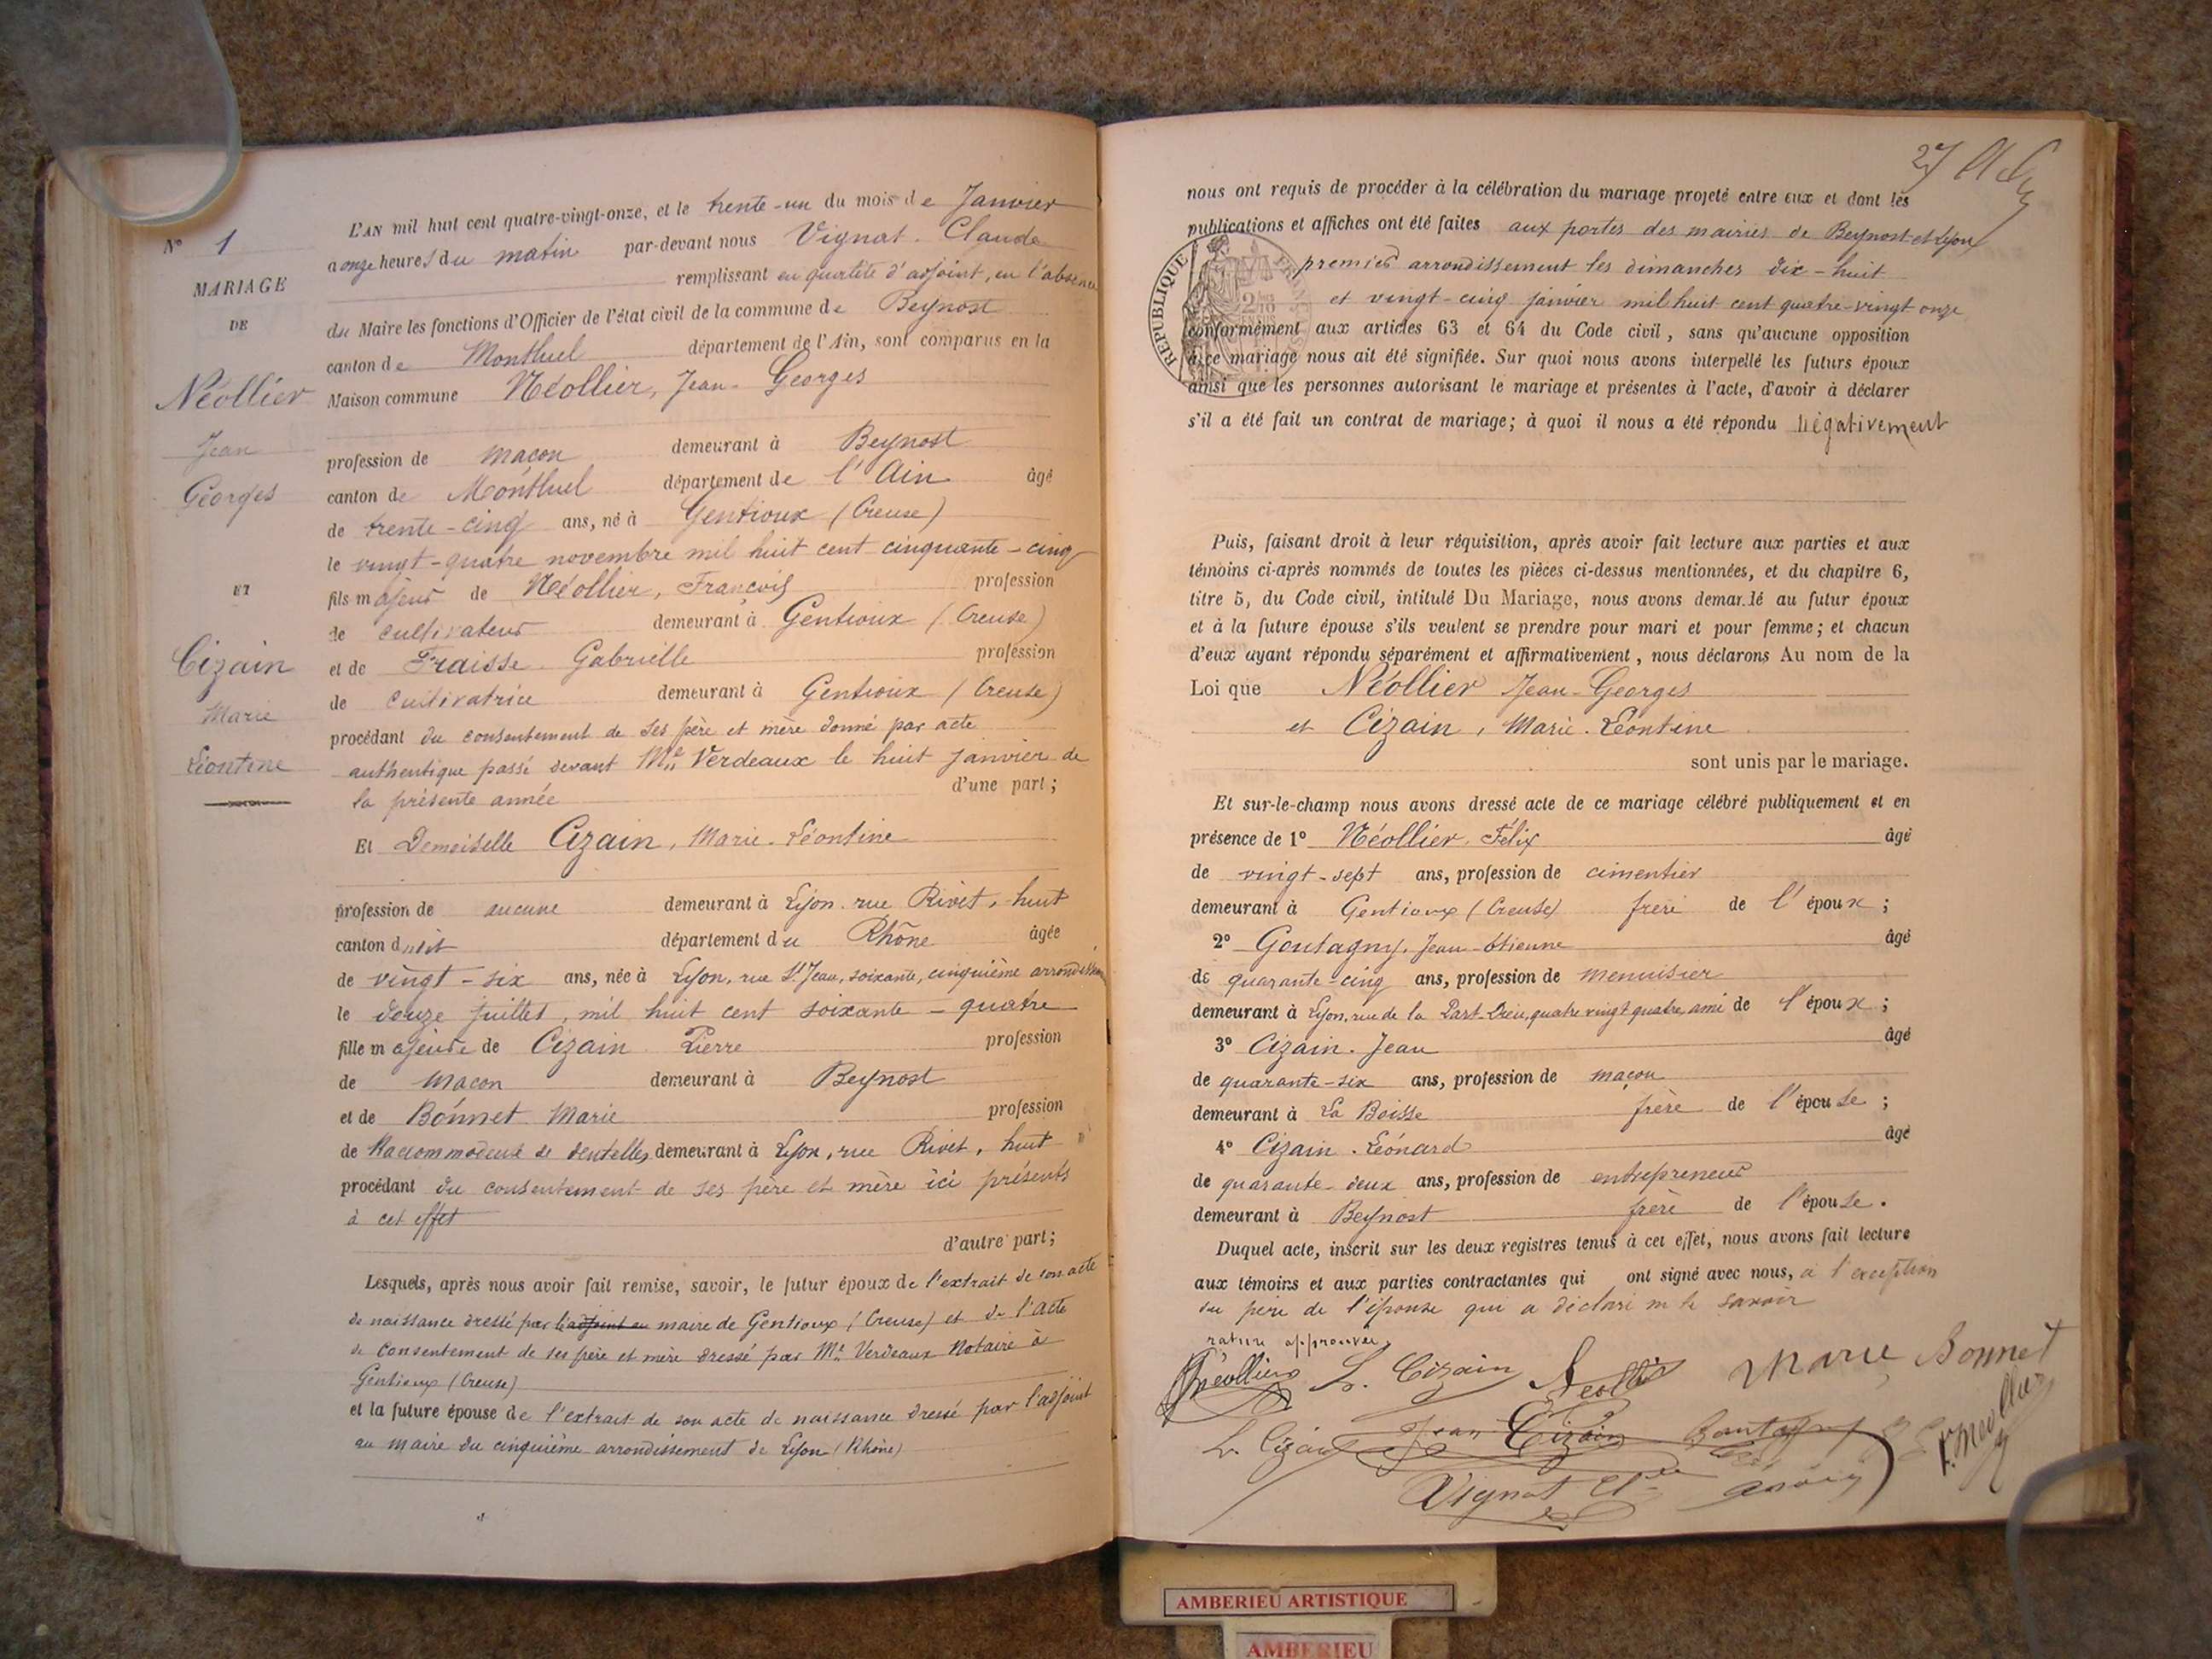 N° 1
MARIAGE
DE
Néollier
Jean
Georges
ET
Cizain
Marie
Léontine
L'AN mil huit cent quatre-vingt-onze, et le trente-un du mois de Janvier
a onze heures du matin par-devant nous Vignat. Claude
remplissant en qualité d'adjoint, en l'absence
du Maire les fonctions d'Officier de l'état civil de la commune de Beynost
canton de Montluel département de l'Ain, sont comparus en la
Maison commune Néollier, Jean-Georges
profession de maçon demeurant à Beynost
canton de Montluel département de l'Ain âgé
de trente-cinq ans, né à Gentioux (Creuse)
le vingt-quatre novembre mil huit cent cinquante-cinq
fils majeur de Néollier, François profession
de cultivateur demeurant à Gentioux (Creuse)
et de Fraisse Gabrielle profession
de cultivatrice demeurant à Gentioux (Creuse)
procédant du consentement de ses père et mère donné par acte
authentique passé devant Me Verdeaux le huit janvier de
la présente année d'une part;
Et Demoiselle Cizain, Marie-Léontine
profession de aucune demeurant à Lyon rue Rivet, huit
canton dudit département du Rhône âgée
de vingt-six ans, née à Lyon, rue St Jean, soixante, cinquième arrondissem
le douze juillet, mil huit cent soixante-quatre
fille majeure de Cizain Pierre profession
de maçon demeurant à Beynost
et de Bonnet Marie profession
de Raccommodeuse de dentelles demeurant à Lyon, rue Rivet, huit
procédant du consentement de ses père et mère ici présents
à cet effet
d'autre part;
Lesquels, après nous avoir fait remise, savoir, le futur époux de l'extrait de son acte
de naissance dressé par le adjoint au maire de Gentioux (Creuse) et de l'acte
de consentement de ses père et mère dressé par Me Verdeaux Notaire à
Gentioux (Creuse)
et la future épouse de l'extrait de son acte de naissance dressé par l'adjoint
au maire du cinquième arrondissement de Lyon (Rhône)
27
nous ont requis de procéder à la célébration du mariage projeté entre eux et dont les
publications et affiches ont été faites aux portes des mairies de Beynost et Lyon
premier arrondissement les dimanches dix-huit
et vingt-cinq janvier mil huit cent quatre-vingt onze
conformément aux articles 63 et 64 du Code civil, sans qu'aucune opposition
à ce mariage nous ait été signifiée. Sur quoi nous avons interpellé les futurs époux
ainsi que les personnes autorisant le mariage et présentes à l'acte, d'avoir à déclarer
s'il a été fait un contrat de mariage; à quoi il nous a été répondu négativement
RÉPUBLIQUE FRANÇAISE
Puis, faisant droit à leur réquisition, après avoir fait lecture aux parties et aux
témoins ci-après nommés de toutes les pièces ci-dessus mentionnées, et du chapitre 6,
titre 5, du Code civil, intitulé Du Mariage, nous avons demandé au futur époux
et à la future épouse s'ils veulent se prendre pour mari et pour femme; et chacun
d'eux ayant répondu séparément et affirmativement, nous déclarons Au nom de la
Loi que Néollier Jean-Georges
et Cizain, Marie-Léontine
sont unis par le mariage.
Et sur-le-champ nous avons dressé acte de ce mariage célébré publiquement et en
présence de 1° Néollier, Félix âgé
de vingt-sept ans, profession de cimentier
demeurant à Gentioux (Creuse) frère de l'époux;
2° Goutagny, Jean-Etienne âgé
de quarante-cinq ans, profession de menuisier
demeurant à Lyon, rue de la Part-Dieu, quatre vingt quatre, ami de l'époux;
3° Cizain. Jean âgé
de quarante-six ans, profession de maçon
demeurant à La Boisse frère de l'épouse;
4° Cizain. Léonard âgé
de quarante-deux ans, profession de entrepreneur
demeurant à Beynost frère de l'épouse.
Duquel acte, inscrit sur les deux registres tenus à cet effet, nous avons fait lecture
aux témoins et aux parties contractantes qui ont signé avec nous, à l'exception
du père de l'épouse qui a déclaré ne le savoir
rature approuvée
Néollier L. Cizain Neollier Marie Bonnet
L. Cizain Jean Cizain Goutagny F. Neollier
Vignat Cde
AMBERIEU ARTISTIQUE
AMBERIEU